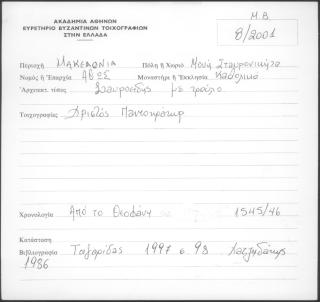 Μ.Β.
ΑΚΑΔΗΜΙΑ ΑΘΗΝΩΝ
ΕΥΡΕΤΗΡΙΟ ΒΥΖΑΝΤΙΝΩΝ ΤΟΙΧΟΓΡΑΦΙΩΝ
ΣΤΗΝ ΕΛΛΑΔΑ
8/2001
Περιοχή ΜΑΚΕΔΟΝΙΑ Πόλη ή Χωριό Μονή Σταυρονικήτα
Νομός ή Ἐπαρχία ΑΘΩΣ Μοναστήρι ή Ἐκκλησία Καθολικό
Ἀρχιτεκτ. τύπος Σταυροειδής με τρούλο
Τοιχογραφίες Χριστός Παντοκράτωρ
Χρονολογία Από το Θεοφάνη 1545/46
Κατάσταση
Βιβλιογραφία 1997 σ. 98 Χατζηδάκης
1986